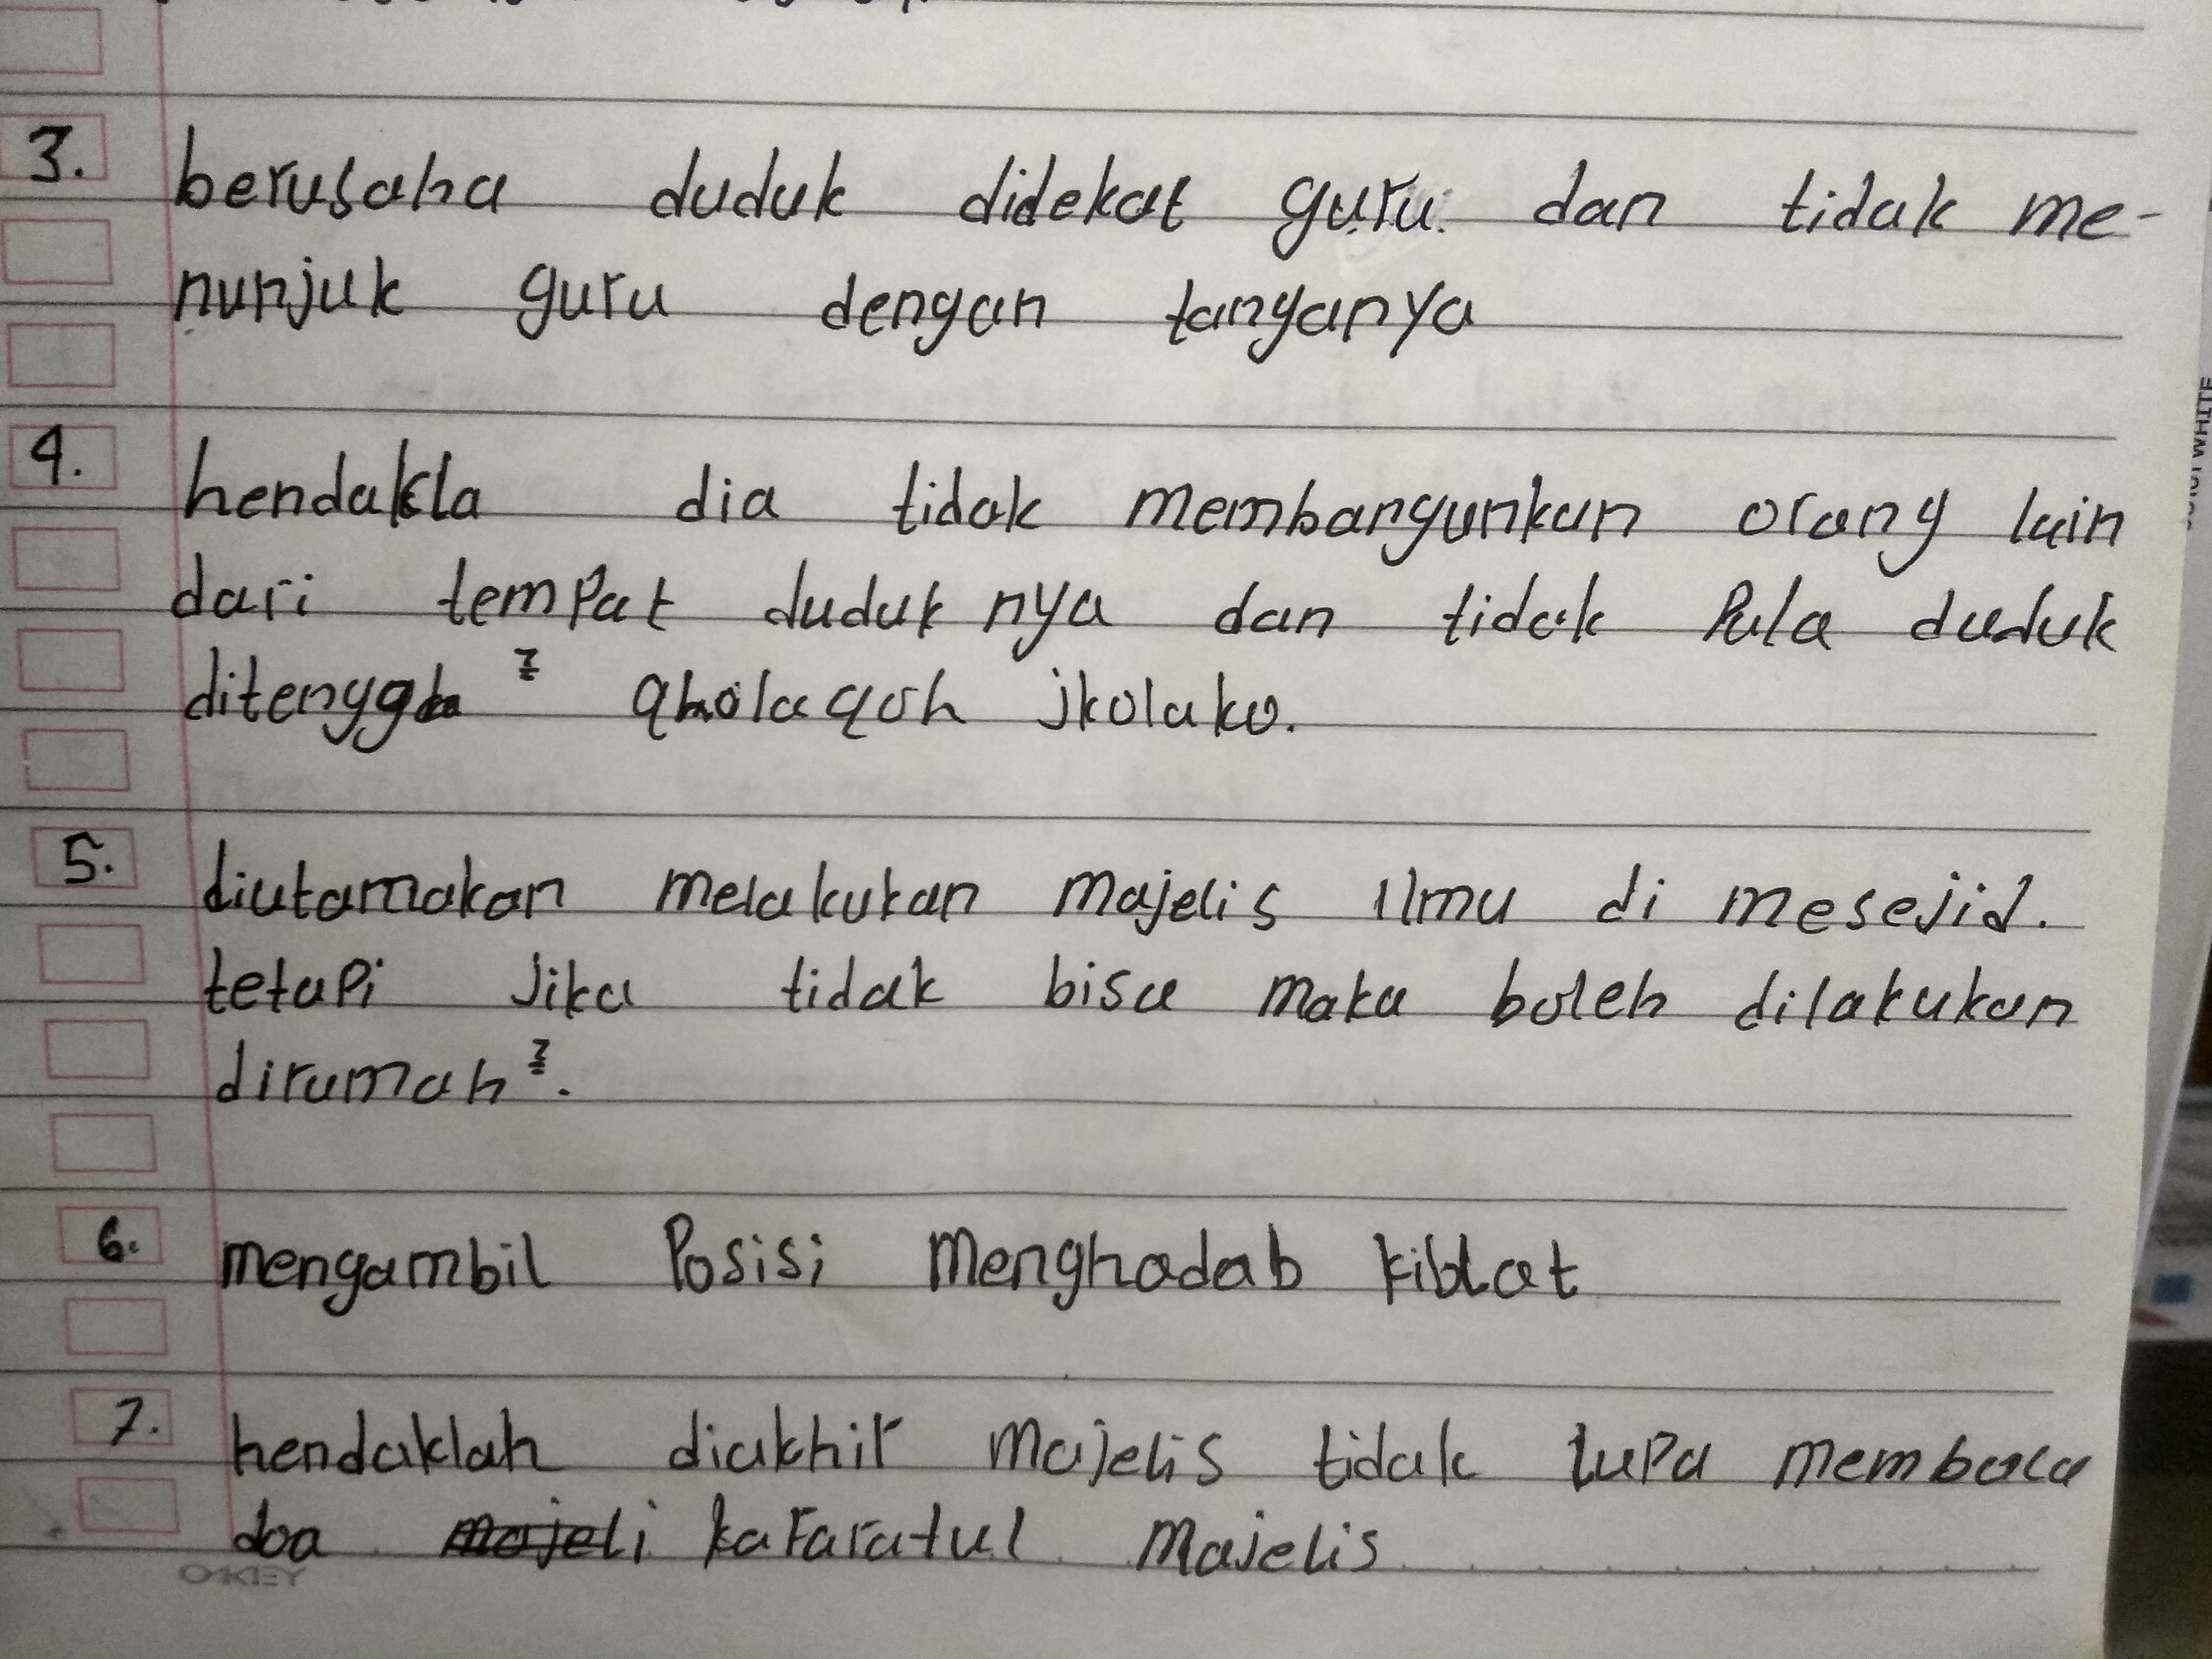 3. berusaha duduk didekat guru dan tidak me-
nunjuk guru dengan tanganya
4. hendakla dia tidak membangunkan orang lain
dari tempat duduk nya dan tidak Pula duduk
ditengga qholaqoh jkolako.
5. diutamakan melakukan majelis Ilmu di mesejid.
tetapi Jika tidak bisa maka boleh dilakukan
dirumah².
6. mengambil Posisi menghadab kiblat
7. hendaklah diakhir majelis tidak lupa membaca
doa kafaratul Majelis
OKEY
WHITE